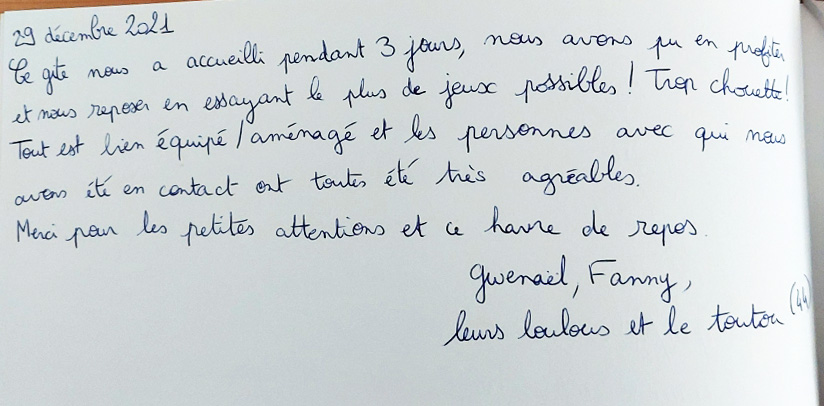 29 décembre 2021
Ce gîte nous a accueilli pendant 3 jours, nous avons pu en profiter
et nous reposer en essayant le plus de jeux possibles ! Trop chouette !
Tout est bien équipé / aménagé et les personnes avec qui nous
avons été en contact ont toutes été très agréables.
Merci pour les petites attentions et ce havre de repos.
Gwenaël, Fanny,
leurs loulous et le toutou (44)